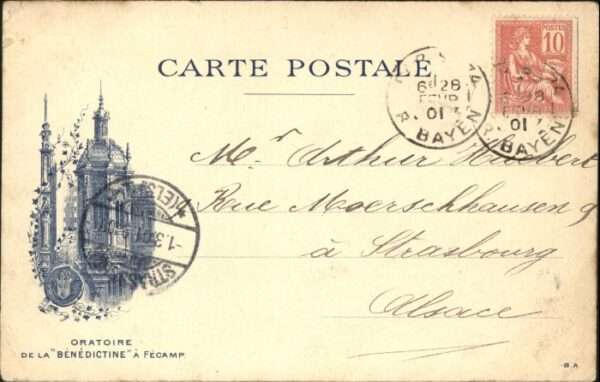 CARTE POSTALE
10
POSTES
6E 28
FEVR
01
R. BAYEN
28
FEVR
01
R. BAYEN
Mr Arthur Huber
Rue Moerschhausen 9
à Strasbourg
Alsace
STRAS
-1.3.01
ORATOIRE
DE LA "BÉNÉDICTINE" À FÉCAMP
B.A